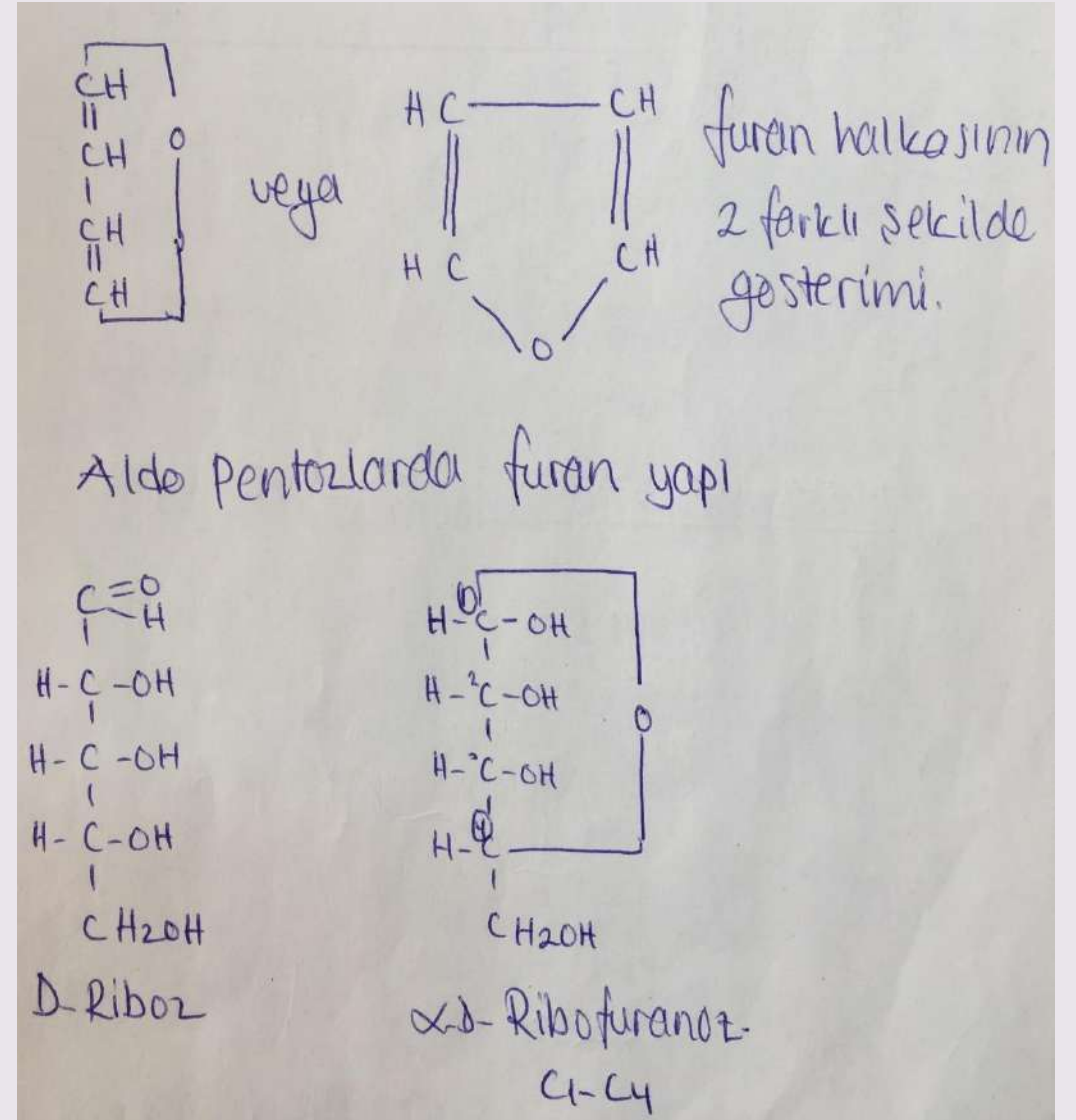 CH
||
CH O
|
CH
||
CH
veya
H C CH
H C CH
O
furan halkasının
2 farklı şekilde
gösterimi.
Aldo pentozlarda furan yapı
C=O
H
H-C-OH
H-C-OH
H-C-OH
CH2OH
D-Riboz
H-1C-OH
H-2C-OH
H-3C-OH
O
H-4C
CH2OH
α-D-Ribofuranoz.
C1-C4